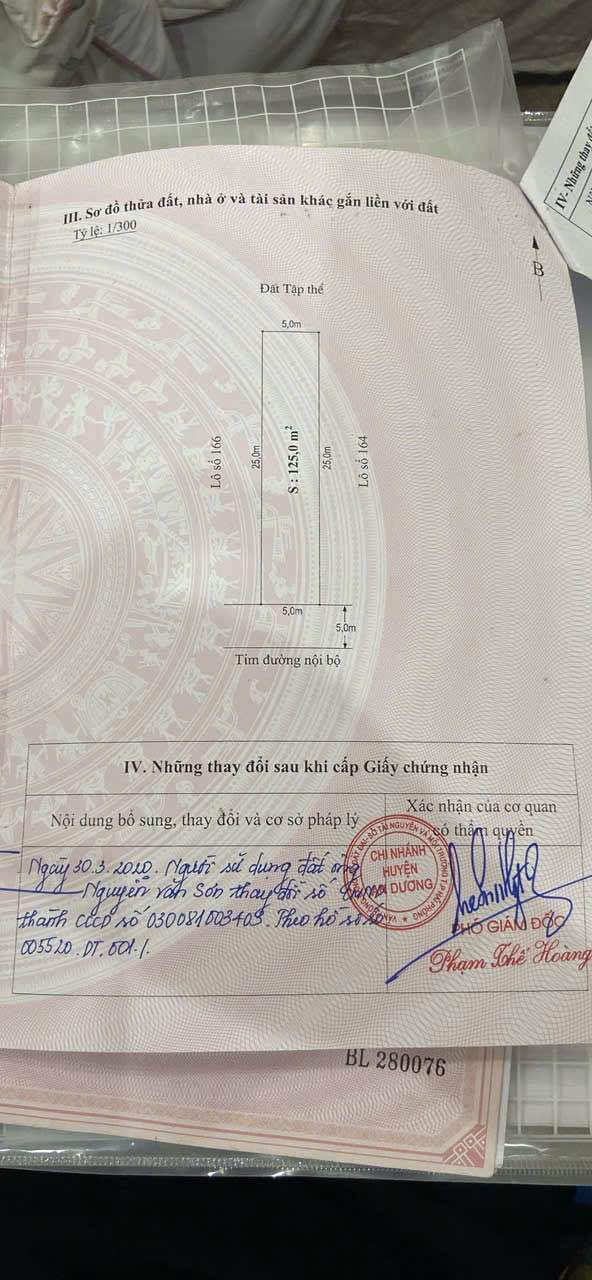 III. Sơ đồ thửa đất, nhà ở và tài sản khác gắn liền với đất
Tỷ lệ: 1/300
IV- Những thay đổi
B
Đất Tập thể
5,0m
Lô số 166
25,0m
S : 125,0 m²
25,0m
Lô số 164
5,0m
5,0m
Tim đường nội bộ
IV. Những thay đổi sau khi cấp Giấy chứng nhận
Nội dung bổ sung, thay đổi và cơ sở pháp lý
Xác nhận của cơ quan
có thẩm quyền
Ngày 30.3.2020. Người sử dụng đất ông
Nguyễn văn Sơn thay đổi số
thành CCCD số 030081003403. Theo hồ sơ số
005520.DT.001./.
CHI NHÁNH
HUYỆN
DƯƠNG
PHÓ GIÁM ĐỐC
Phạm Thế Hoàng
BL 280076